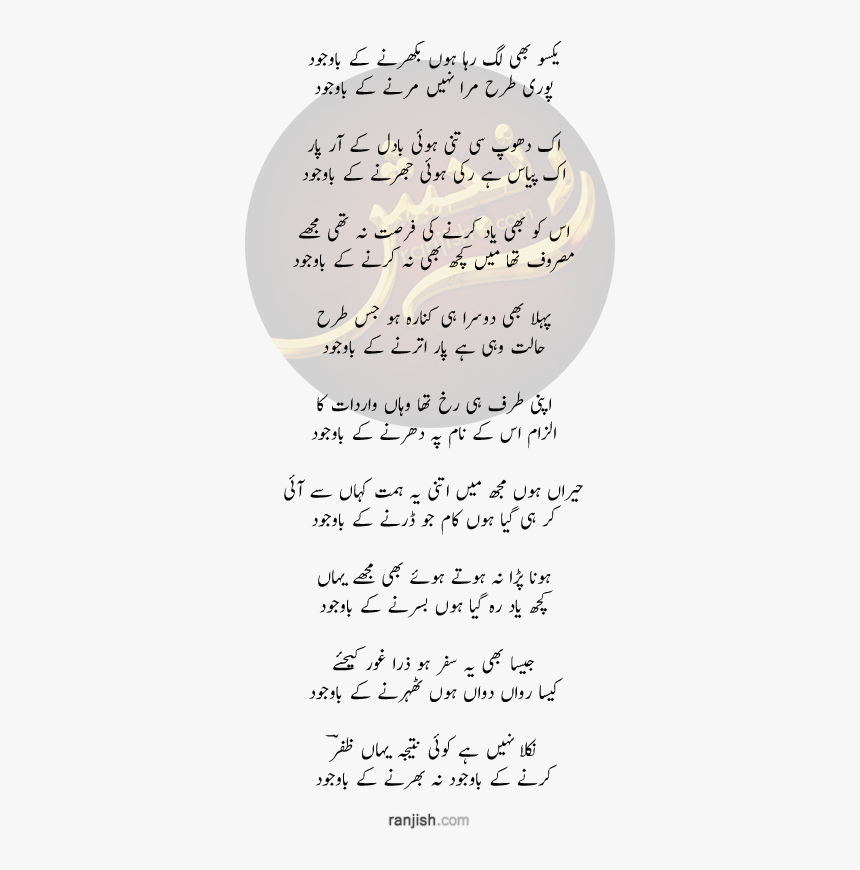 یکسو بھی لگ رہا ہوں بکھرنے کے باوجود
پوری طرح مرا نہیں مرنے کے باوجود
اک دھوپ سی تنی ہوئی بادل کے آر پار
اک پیاس ہے رکی ہوئی جھرنے کے باوجود
اس کو بھی یاد کرنے کی فرصت نہ تھی مجھے
مصروف تھا میں کچھ بھی نہ کرنے کے باوجود
پہلا بھی دوسرا ہی کنارہ ہو جس طرح
حالت وہی ہے پار اترنے کے باوجود
اپنی طرف ہی رخ تھا وہاں واردات کا
الزام اس کے نام پہ دھرنے کے باوجود
حیراں ہوں مجھ میں اتنی یہ ہمت کہاں سے آئی
کر ہی گیا ہوں کام جو ڈرنے کے باوجود
ہونا پڑا نہ ہوتے ہوئے بھی مجھے یہاں
کچھ یاد رہ گیا ہوں بسرنے کے باوجود
جیسا بھی یہ سفر ہو ذرا غور کیجئے
کیسا رواں دواں ہوں ٹھہرنے کے باوجود
نکلا نہیں ہے کوئی نتیجہ یہاں ظفرؔ
کرنے کے باوجود نہ بھرنے کے باوجود
ranjish.com